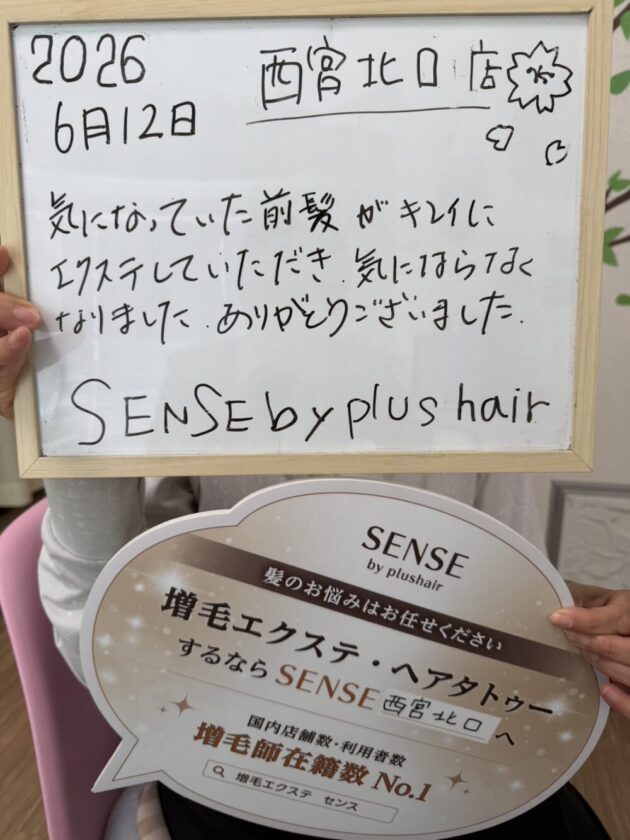 2026
6月12日
西宮北口店
気になっていた前髪がキレイに
エクステしていただき.気にならなく
なりました.ありがとうございました.
SENSE by plus hair
SENSE
by plushair
髪のお悩みはお任せください
増毛エクステ・ヘアタトゥー
するなら SENSE 西宮北口 へ
国内店舗数・利用者数
増毛師在籍数 No.1
増毛エクステ センス